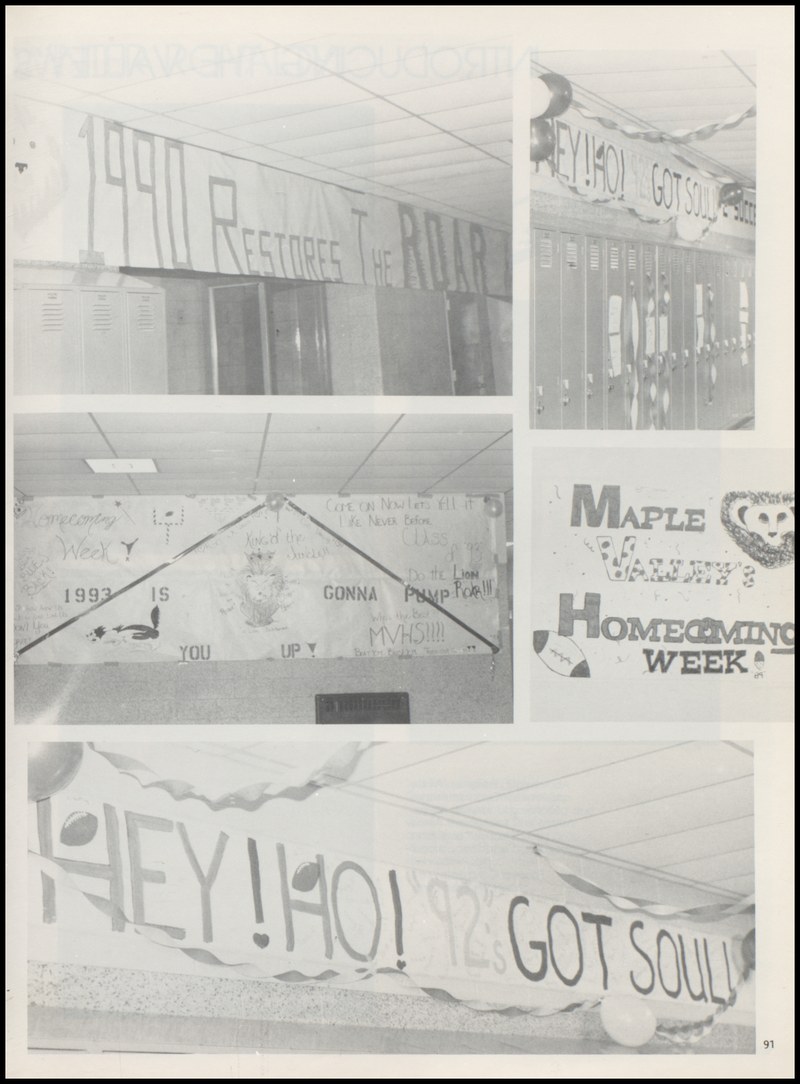 1990 RESTORES THE ROAR
HEY! HO! 92's GOT SOUL!
Homecoming
Week!
King of the
Jungle!!
COME ON NOW LETS YELL IT
LIKE NEVER BEFORE
CLASS
of '93
Do the LION
ROAR!!!
1993 IS GONNA PUMP
MVHS!!!!
YOU UP!
MAPLE
VALLEY'S
HOMECOMING
WEEK!
HEY! HO! "92"s GOT SOUL!
91